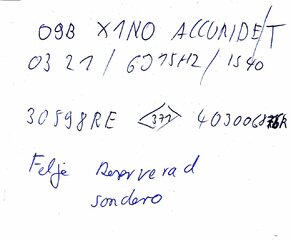 09B X1NO ACCURIDE/T
0321/6J15H2/1540
30598RE <371>
Felje Reserverad
sondero